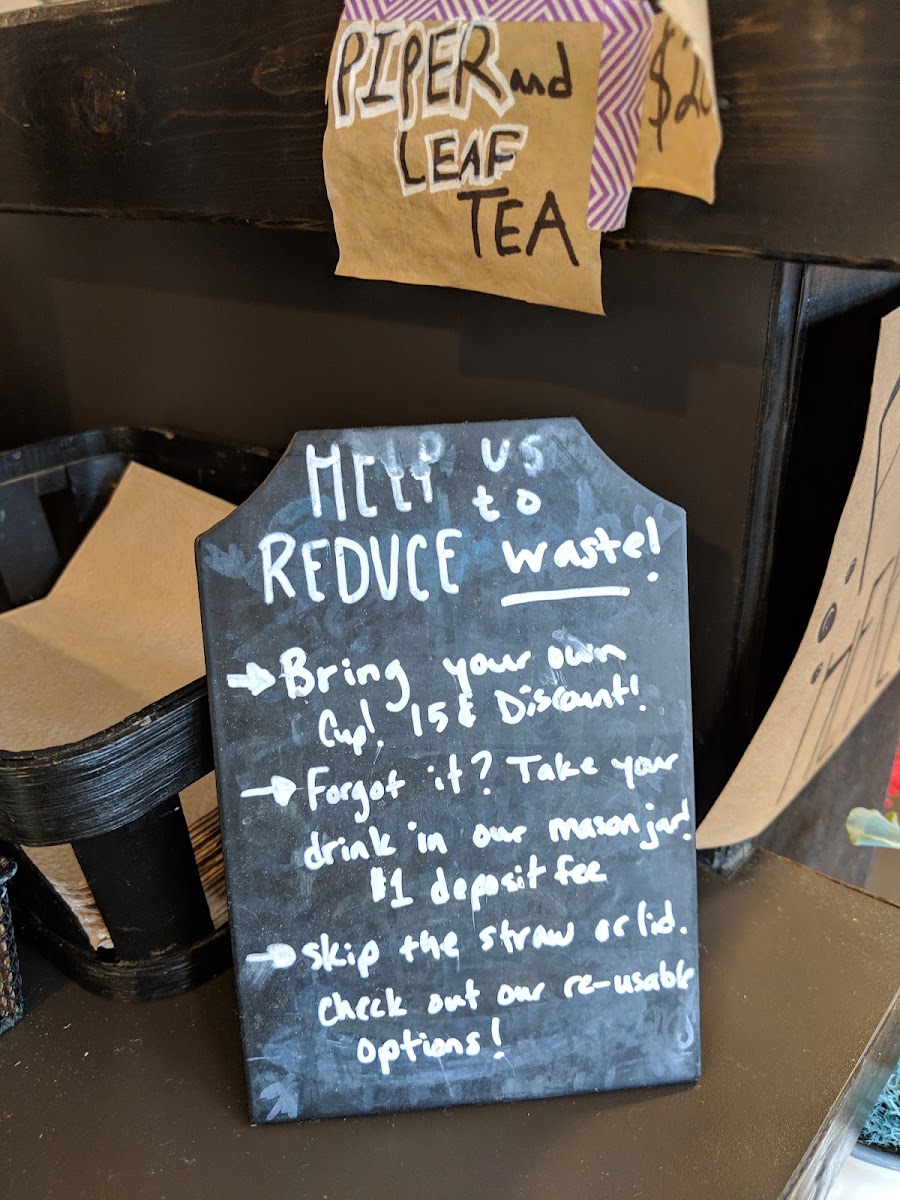 PIPER and
LEAF
TEA
HELP US
to
REDUCE waste!
Bring your own
Cup! 15¢ Discount!
Forgot it? Take your
drink in our mason jar!
$1 deposit fee
skip the straw or lid.
Check out our re-usable
options!